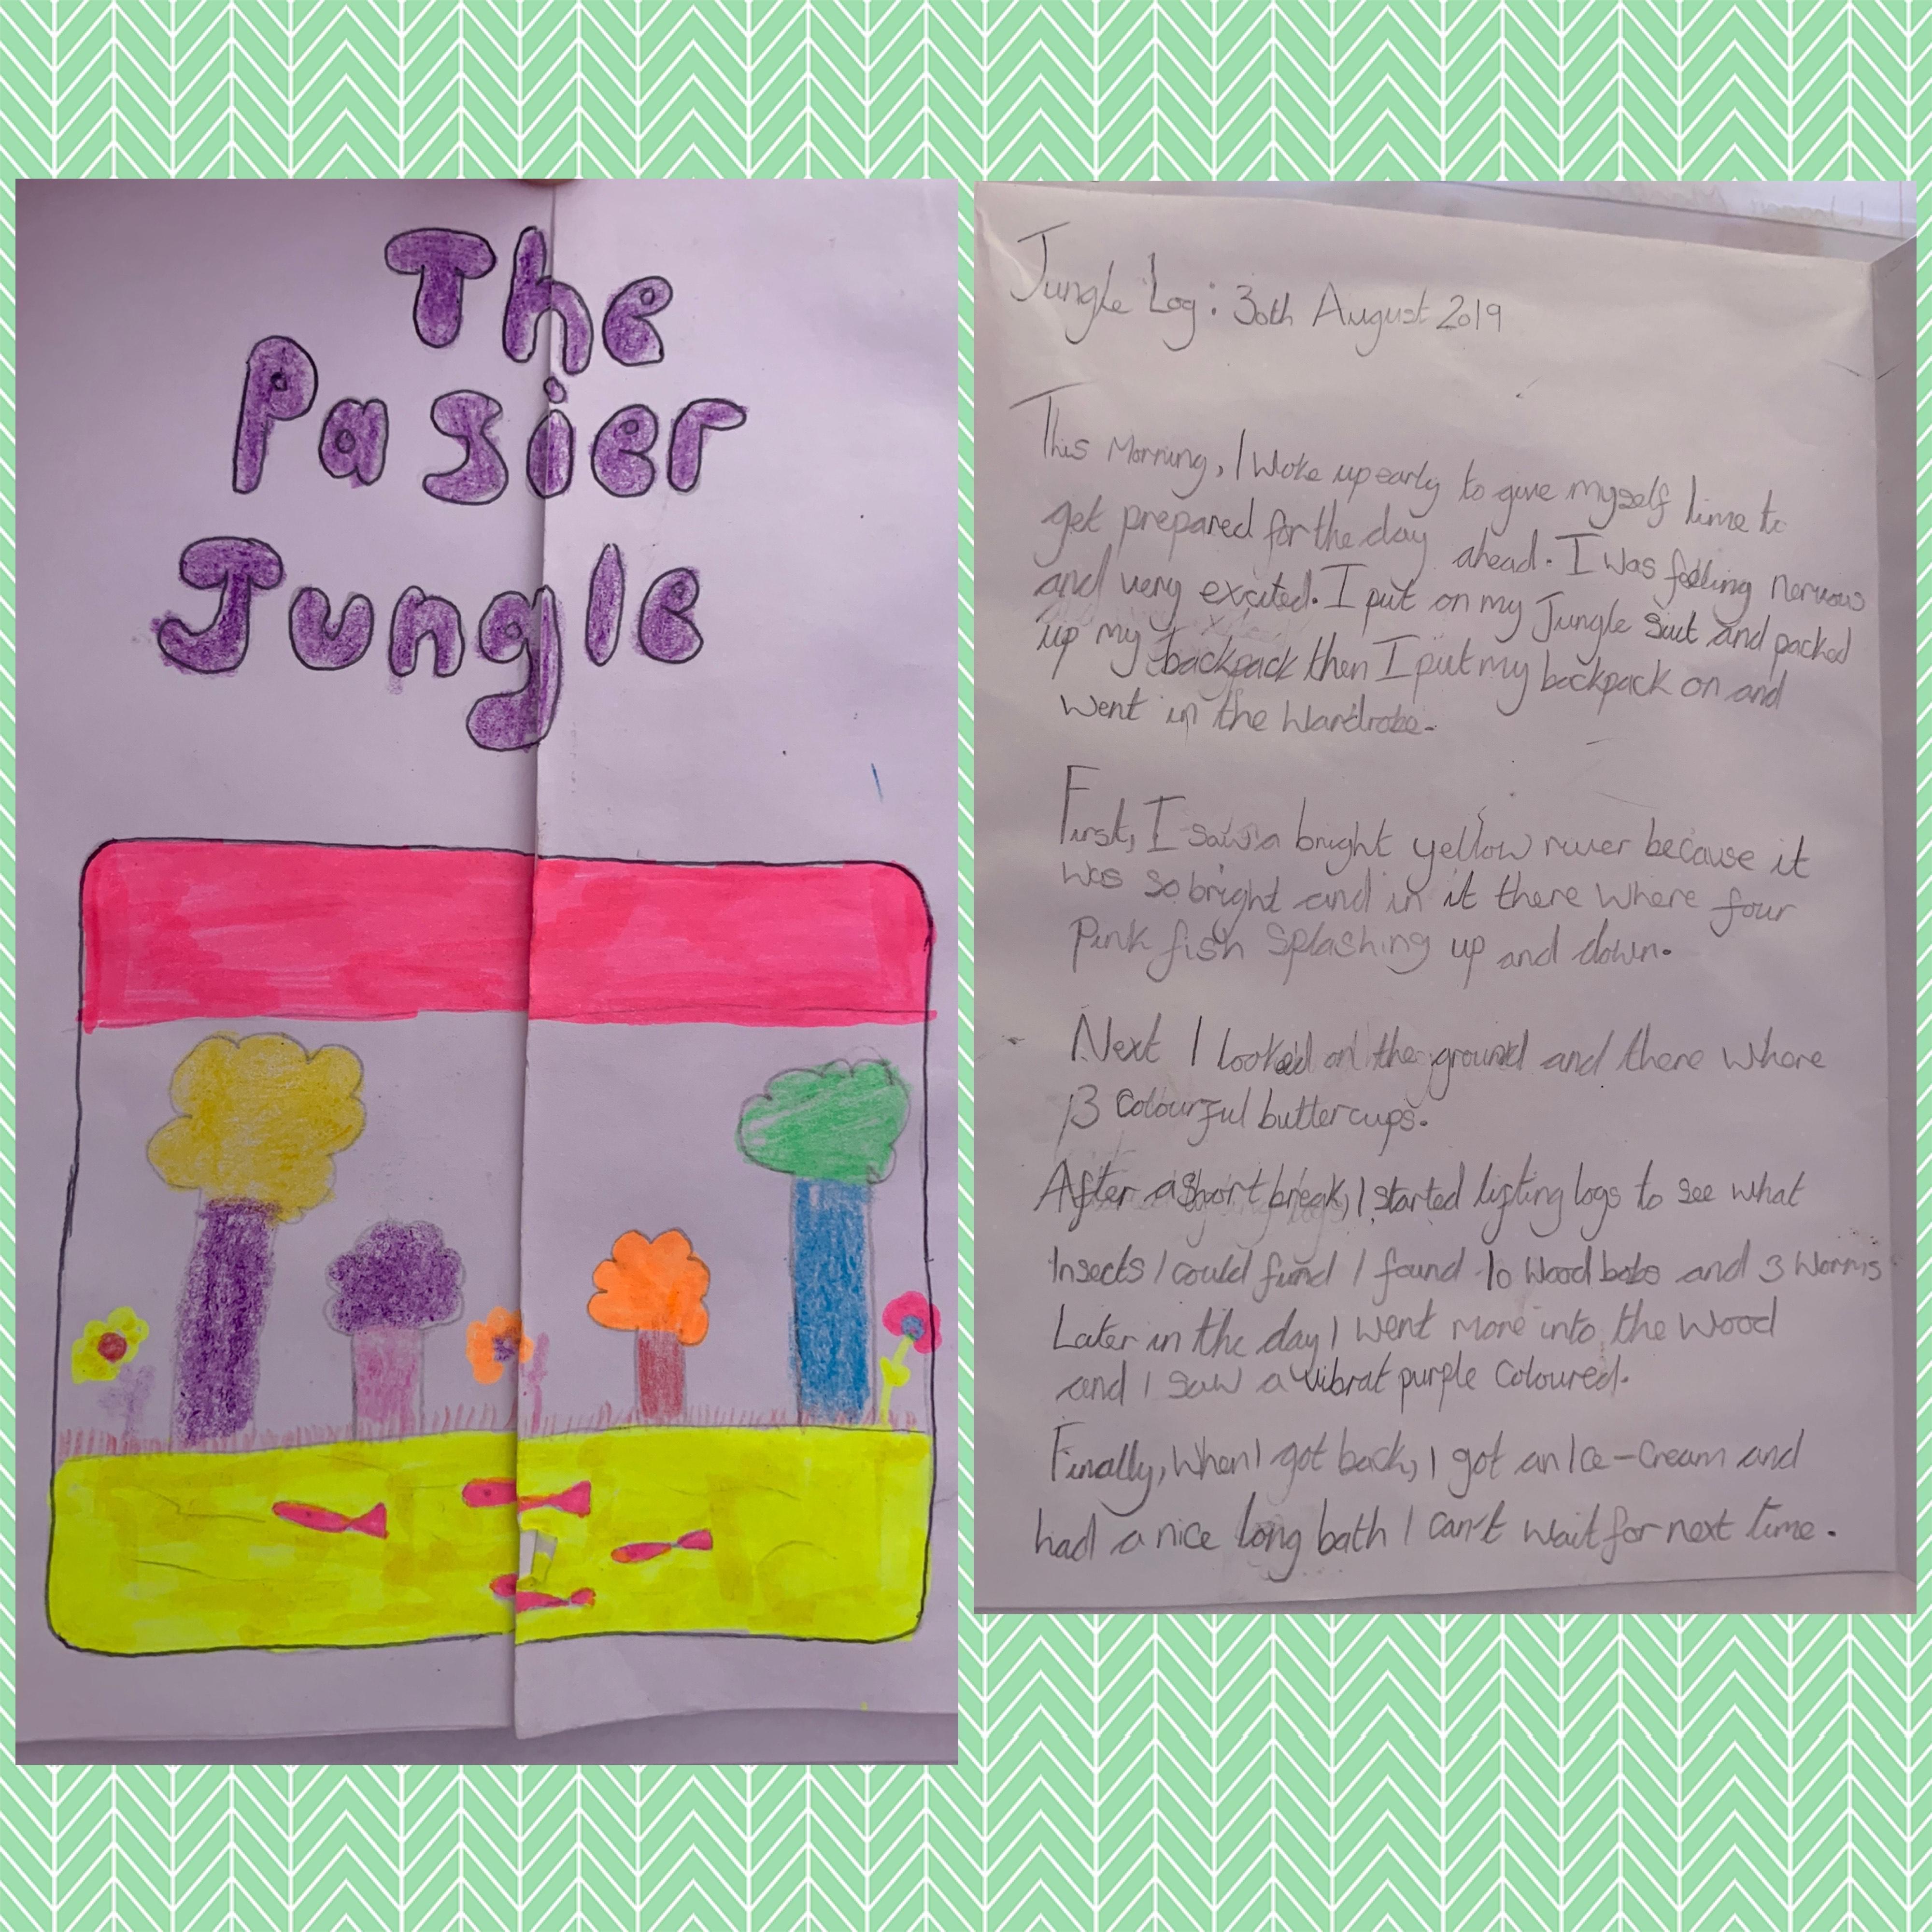 The
Pasier
Jungle
Jungle Log: 30th August 2019
This Morning, I woke up early to give myself time to
get prepared for the day ahead. I was feeling nervous
and very excited. I put on my Jungle Suit and packed
up my backpack then I put my backpack on and
went in the Wardrobe.
First, I saw a bright yellow river because it
was so bright and in it there where four
Pink fish splashing up and down.
Next I looked on the ground and there where
13 Colourful buttercups.
After a short break, I started lifting logs to see what
Insects I could find I found 10 wood and 3 worms
Later in the day I went more into the wood
and I saw a vibrat purple Coloured.
Finally, when I got back, I got an Ice-Cream and
had a nice long bath I can't wait for next time.